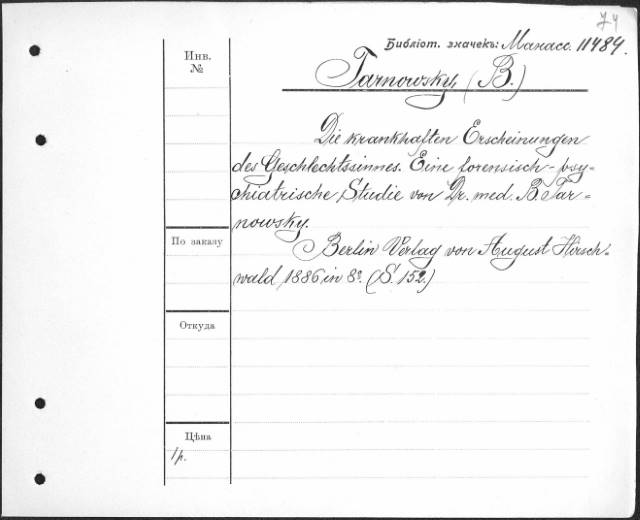 74
Библiот. значекъ: Манасс. 11484.
Инв.
№
Tarnowsky, (B.)
Die krankhaften Erscheinungen
des Geschlechtssinnes. Eine forensisch-psy-
chiatrische Studie von Dr. med. B. Tar-
nowsky.
По заказу
Berlin Verlag von August Hirsch-
wald, 1886, in 8º. (S. 152.)
Откуда
Цѣна
1 р.